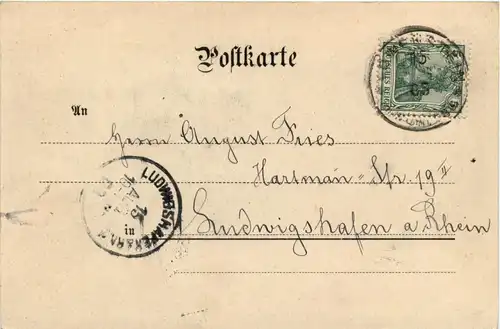 Postkarte
An
Herrn August Fries
Hartman-Str 19 II
in
Ludwigshafen a Rhein
LUDWIGSHAFEN
15